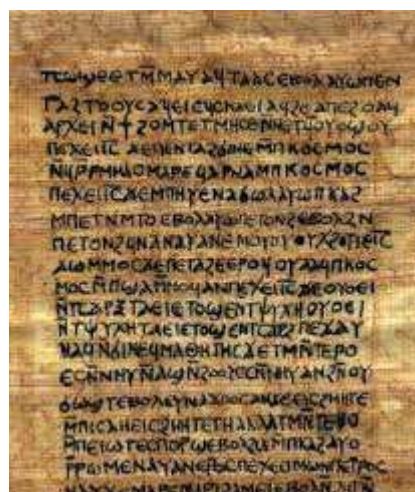 ⲧⲥⲱϣⲉ ⲉⲧⲙ̄ⲙⲁⲩ ⲁϥⲧⲁⲁⲥ ⲉⲃⲟⲗ ⲁⲩⲱ ⲡⲉⲛ
ⲧⲁϩⲧⲟⲟⲩⲥ ⲁϥⲉⲓ ⲉϥⲥⲕⲁⲉⲓ ⲁϥϩⲉ ⲁⲡⲉϩⲟ ⲁϥ
ⲁⲣⲭⲉⲓ ⲛ̄ϯ ϩⲟⲙⲧ ⲉⲧⲙⲏⲥⲉ ⲛⲛⲉⲧϥⲟⲩⲟϣⲟⲩ
ⲡⲉϫⲉ ⲓ̅ⲥ̅ ϫⲉ ⲡⲉⲛⲧⲁϩϭⲓⲛⲉ ⲙⲡⲕⲟⲥⲙⲟⲥ
ⲛ̄ϥⲣ ⲣⲙⲙⲁⲟ ⲙⲁⲣⲉϥⲁⲣⲛⲁ ⲙⲡⲕⲟⲥⲙⲟⲥ
ⲡⲉϫⲉ ⲓ̅ⲥ̅ ϫⲉ ⲙⲡⲏⲩⲉ ⲛⲁϭⲱⲗ ⲁⲩⲱ ⲡⲕⲁϩ
ⲙⲡⲉⲧⲛⲙⲧⲟ ⲉⲃⲟⲗ ⲁⲩⲱ ⲡⲉⲧⲟⲛϩ ⲉⲃⲟⲗ ϩⲛ
ⲡⲉⲧⲟⲛϩ ϥⲛⲁⲛⲁⲩ ⲁⲛ ⲉⲙⲟⲩ ⲟⲩⲭ ϩⲟⲧⲓ ⲉⲓ̅ⲥ̅
ϫⲱ ⲙⲙⲟⲥ ϫⲉ ⲡⲉⲧⲁϩⲉ ⲉⲣⲟϥ ⲟⲩⲁⲁϥ ⲡⲕⲟⲥ
ⲙⲟⲥ ⲙ̄ⲡϣⲁ ⲙⲙⲟϥ ⲁⲛ ⲡⲉϫⲉ ⲓ̅ⲥ̅ ϫⲉ ⲟⲩⲟⲉⲓ
ⲛ̄ⲧⲥⲁⲣⲝ ⲧⲁⲉⲓ ⲉⲧⲟϣⲉ ⲛⲧⲯⲩⲭⲏ ⲟⲩⲟⲉⲓ
ⲛ̄ⲧⲯⲩⲭⲏ ⲧⲁⲉⲓ ⲉⲧⲟϣⲉ ⲛⲧⲥⲁⲣⲝ ⲡⲉϫⲁⲩ
ⲛⲁϥ ⲛ̄ϭⲓ ⲛⲉϥⲙⲁⲑⲏⲧⲏⲥ ϫⲉ ⲧⲙⲛ̄ⲧⲉⲣⲟ
ⲉⲥⲛ̄ⲛⲏⲩ ⲛⲁϣ ⲛ̄ϩⲟⲟⲩ ⲉⲥⲛ̄ⲛⲏⲩ ⲁⲛ ϩⲛ̄ ⲟⲩ
ϭⲱϣⲧ ⲉⲃⲟⲗ ⲉⲩⲛⲁϫⲟⲟⲥ ⲁⲛ ϫⲉ ⲉⲓⲥϩⲏⲏⲧⲉ
ⲙⲡⲓⲥⲁ ⲏ ⲉⲓⲥϩⲏⲏⲧⲉ ⲧⲏ ⲁⲗⲗⲁ ⲧⲙⲛ̄ⲧⲉⲣⲟ
ⲙ̄ⲡⲉⲓⲱⲧ ⲉⲥⲡⲟⲣϣ ⲉⲃⲟⲗ ϩⲓϫⲙ ⲡⲕⲁϩ ⲁⲩⲱ
ⲣ̄ⲣⲱⲙⲉ ⲛⲁⲩ ⲁⲛ ⲉⲣⲟⲥ ⲡⲉϫⲉ ⲥⲓⲙⲱⲛ ⲡⲉⲧⲣⲟⲥ
ⲛⲁⲩ ϫⲉ ⲙⲁⲣⲉ ⲙⲁⲣⲓϩⲁⲙ ⲉⲓ ⲉⲃⲟⲗ ⲛ̄ϩⲏⲧⲛ̄